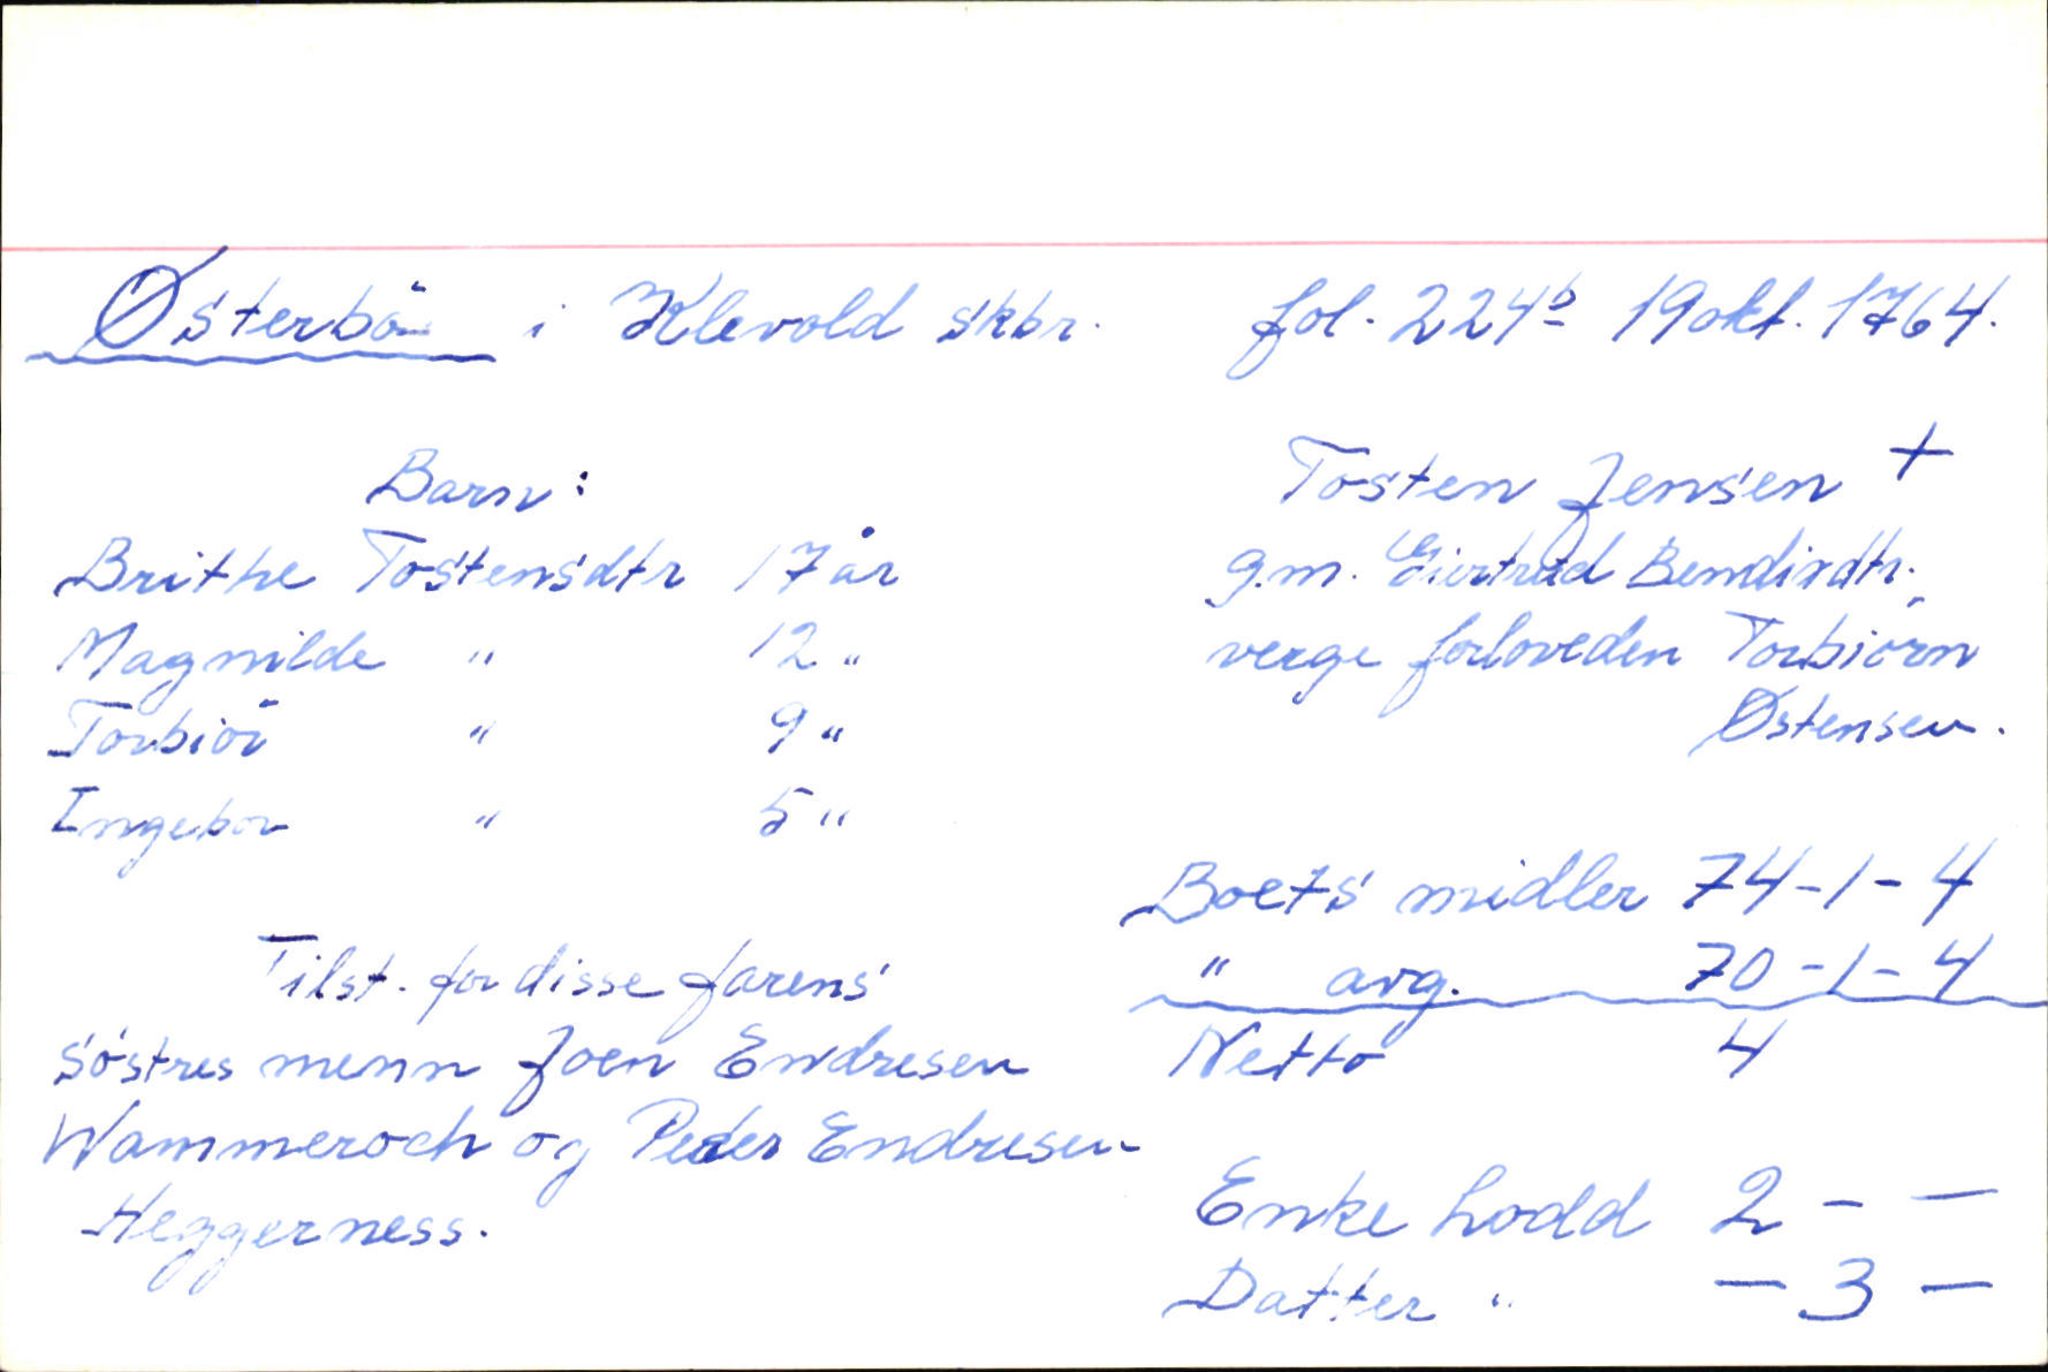 Østerbö i Klevold skbr. fol. 224b 19 okt. 1764.
Barn:
Brithe Tostensdtr 17 år
Magnilde " 12 "
Torbiör " 9 "
Ingebor " 5 "
Tilst. for disse farens
söstres menn Joen Endresen
Wammeroch og Peder Endresen
Heggerness.
Tosten Jensen +
g.m. Giertrud Bendixdtr.
verge forloveden Torbiörn
Østensen.
Boets midler 74-1-4
" avg. 70-1-4
Netto 4
Enke Lodd 2 - -
Datter " - 3 -